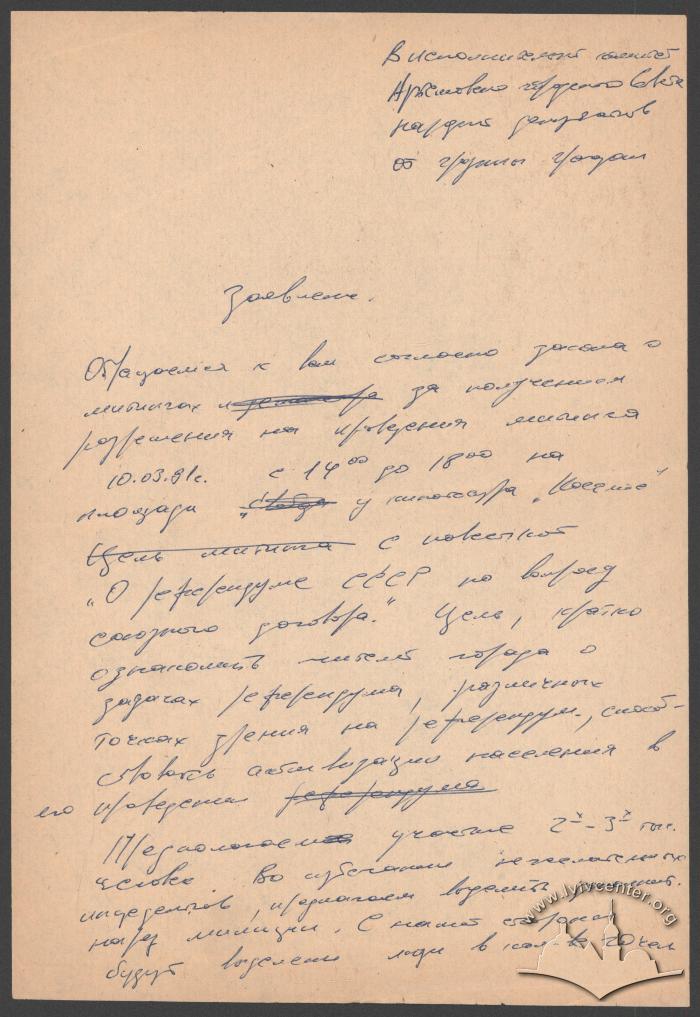 В исполнительный комитет
Артемовского городского Совета
народных депутатов
от группы граждан
Заявление.
Обращаемся к вам согласно закона о
митингах за получением
разрешения на проведения митинга
10.03.91г. с 14⁰⁰ до 18⁰⁰ на
площади у кинотеатра „Космос"
Цель митинга с повесткой
„О референдуме СССР по вопросу
союзного договора." Цель, кратко
ознакомить жителей города о
задачах референдума, различных
точках зрения на референдум, способ-
ствовать активизации населения в
его проведении референдума
Предполагаем участие 2ˣ – 3ˣ тыс.
человек. Во избежание нежелательных
инцидентов, предлагаем выделить
наряд милиции. С нашей стороны
будут выделены люди в кол-ве 20 чел
www.lvivcenter.org